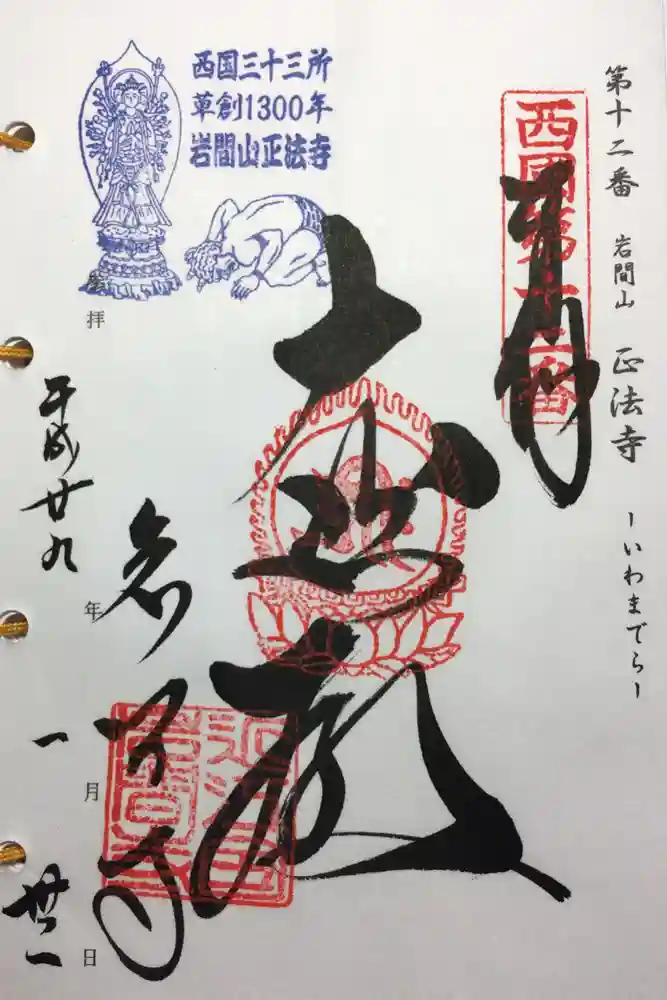 第十二番 岩間山 正法寺 ーいわまでらー
西國第十二番
奉拝
西国三十三所
草創1300年
岩間山正法寺
拝
大悲殿
岩間寺
平成廿九年一月丗一日